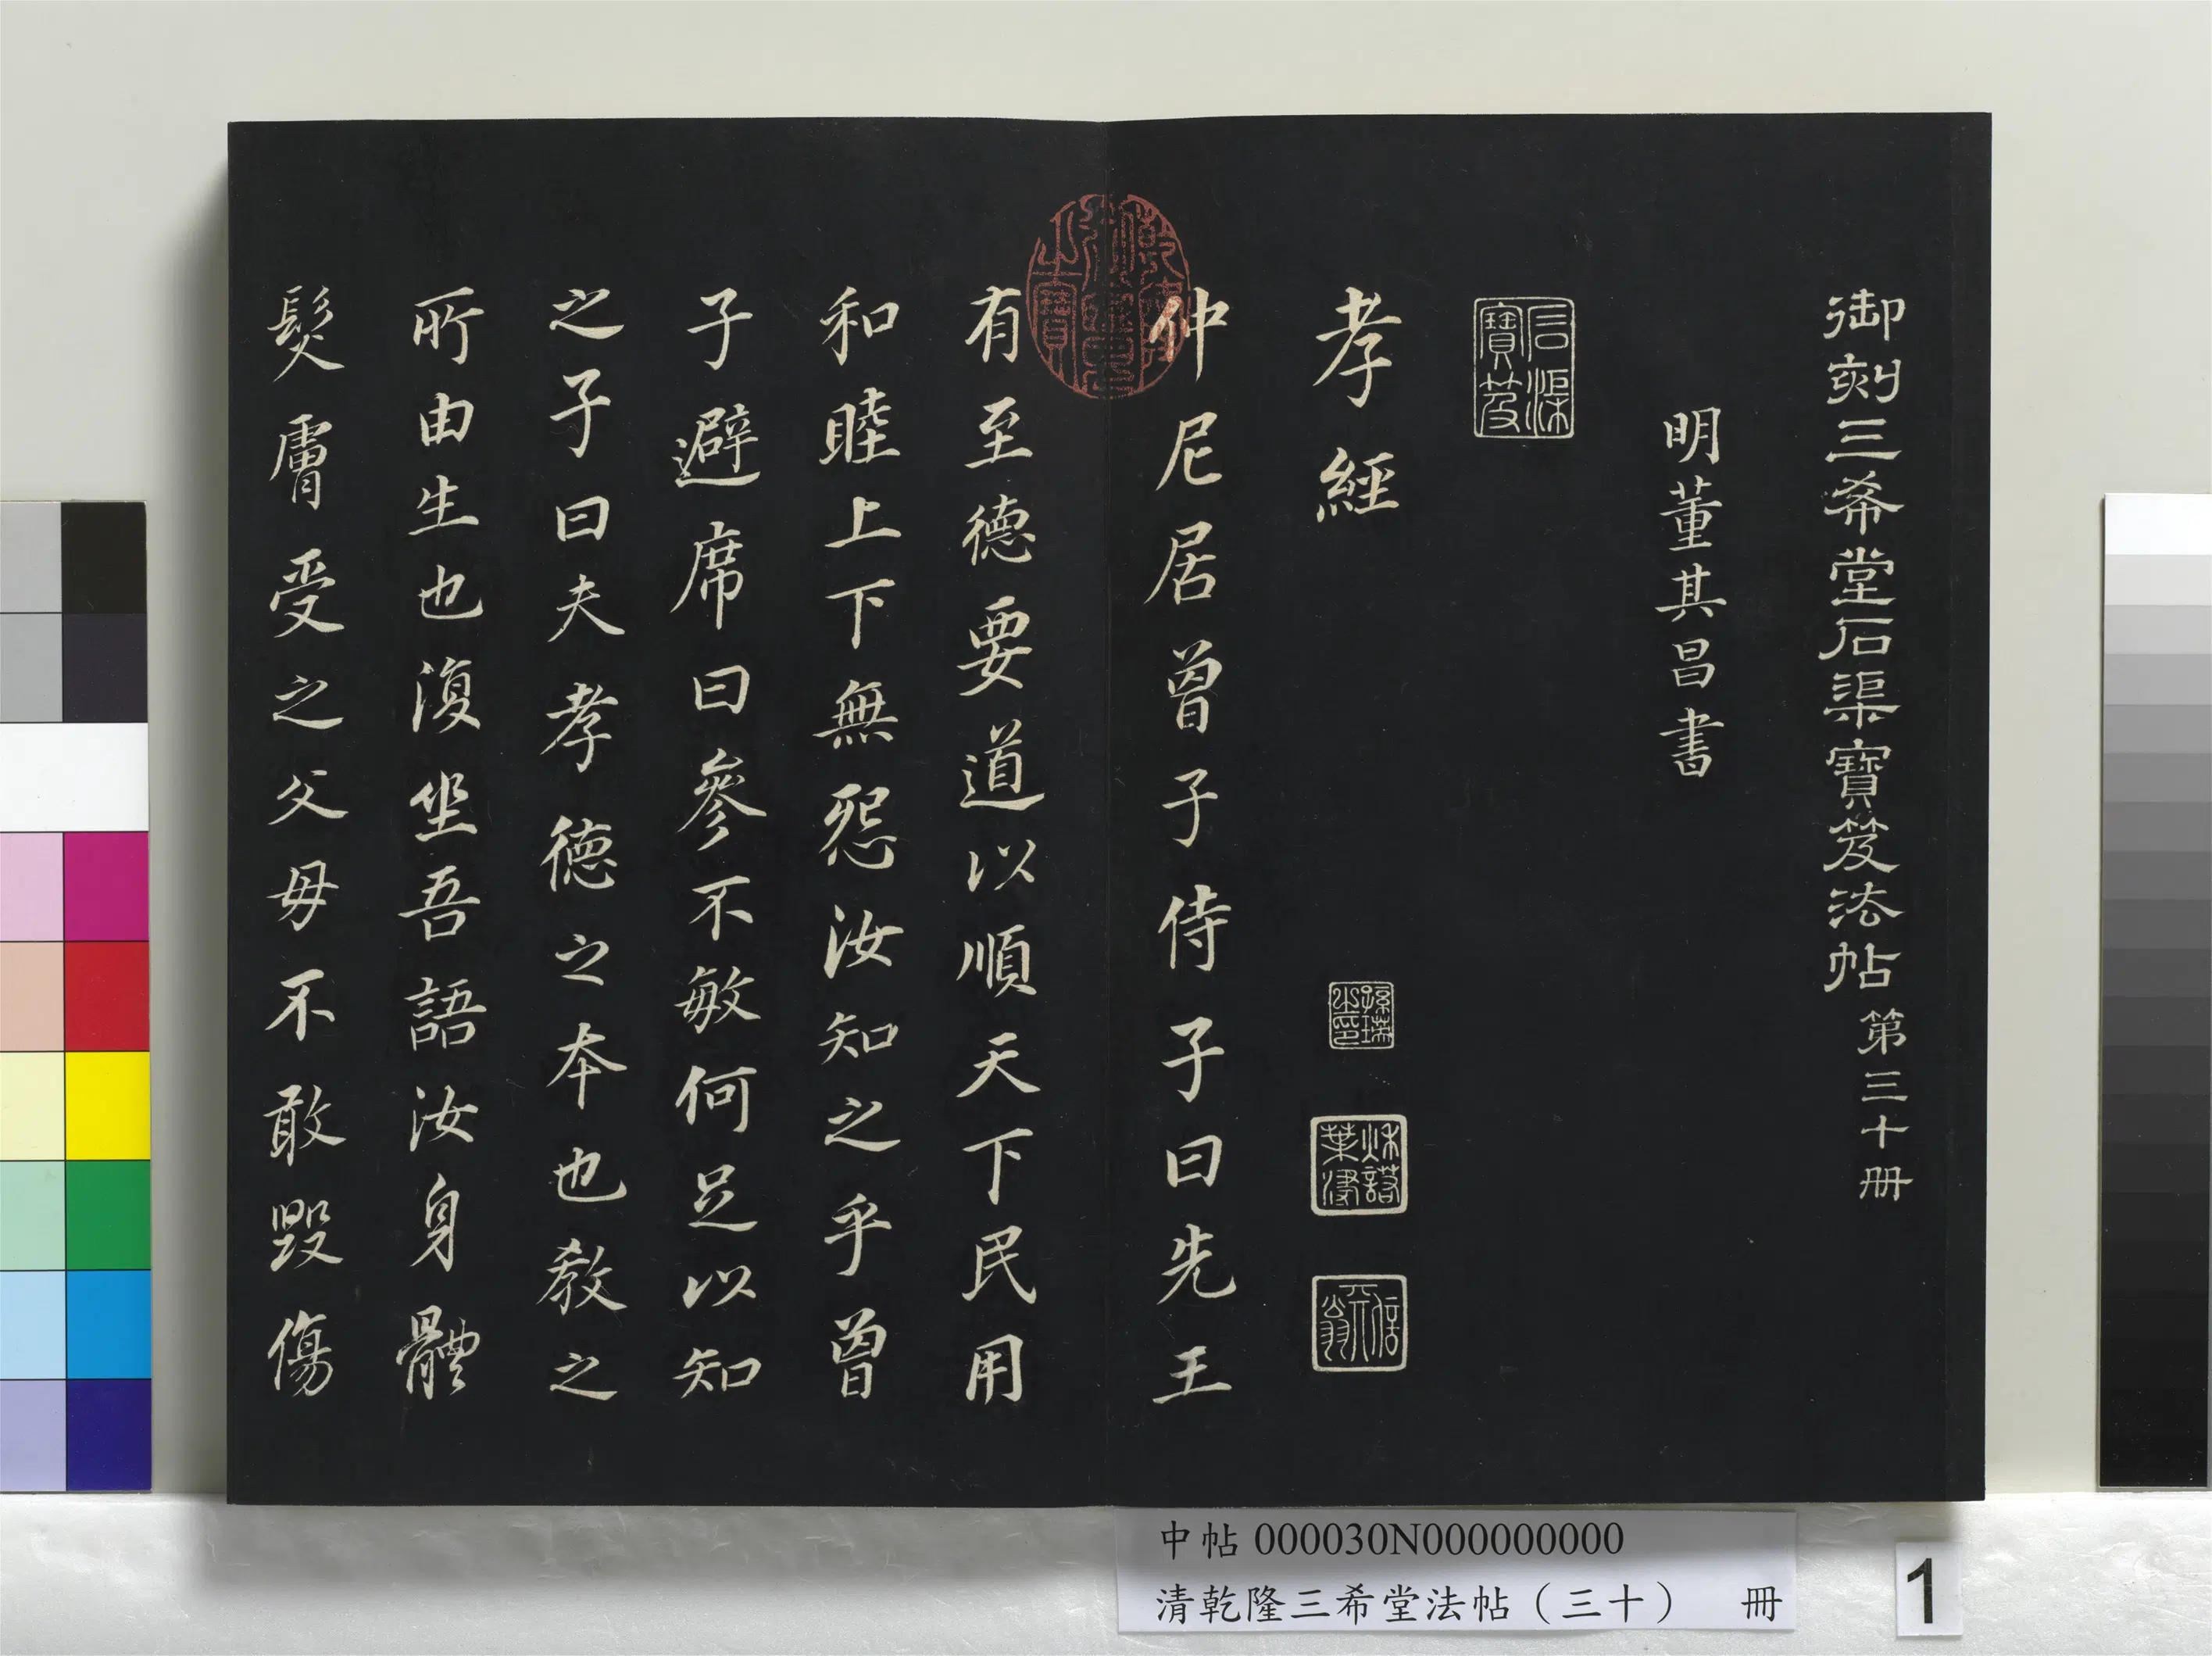 御刻三希堂石渠寶笈法帖第三十冊
明董其昌書
石渠寶笈
孝經
仲尼居曾子侍子曰先王
有至德要道以順天下民用
和睦上下無怨汝知之乎曾
子避席曰參不敏何足以知
之子曰夫孝德之本也教之
所由生也復坐吾語汝身體
髮膚受之父毋不敢毀傷
中帖 000030N000000000
清乾隆三希堂法帖（三十） 冊
1